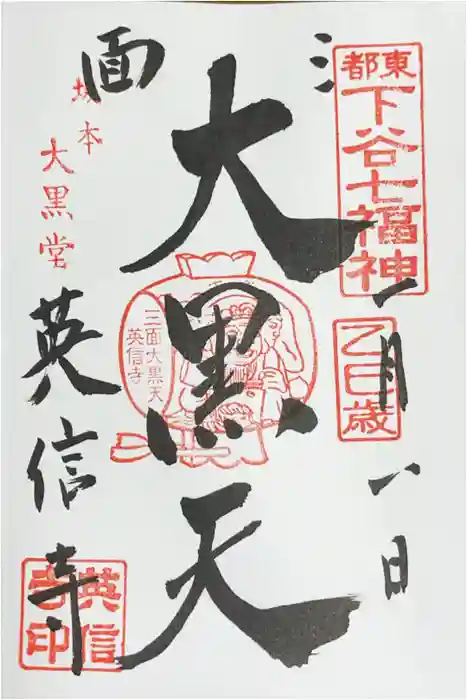 東都
下谷七福神
乙巳歳
一月一日
三面
大黒天
三面大黒天
英信寺
坂本
大黒堂
英信寺
英信寺印